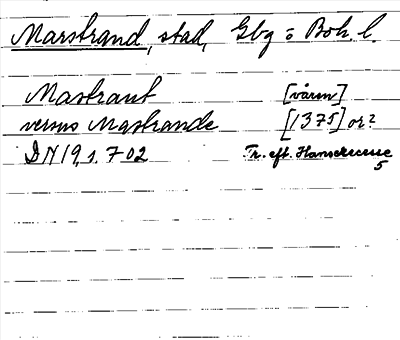 Marstrand, stad, Gbg o Boh. l.
Mastrant [våren]
versus Mastrande [1375] or?
DN 19, s. 702 Tr. eft. Hanserecesse
5